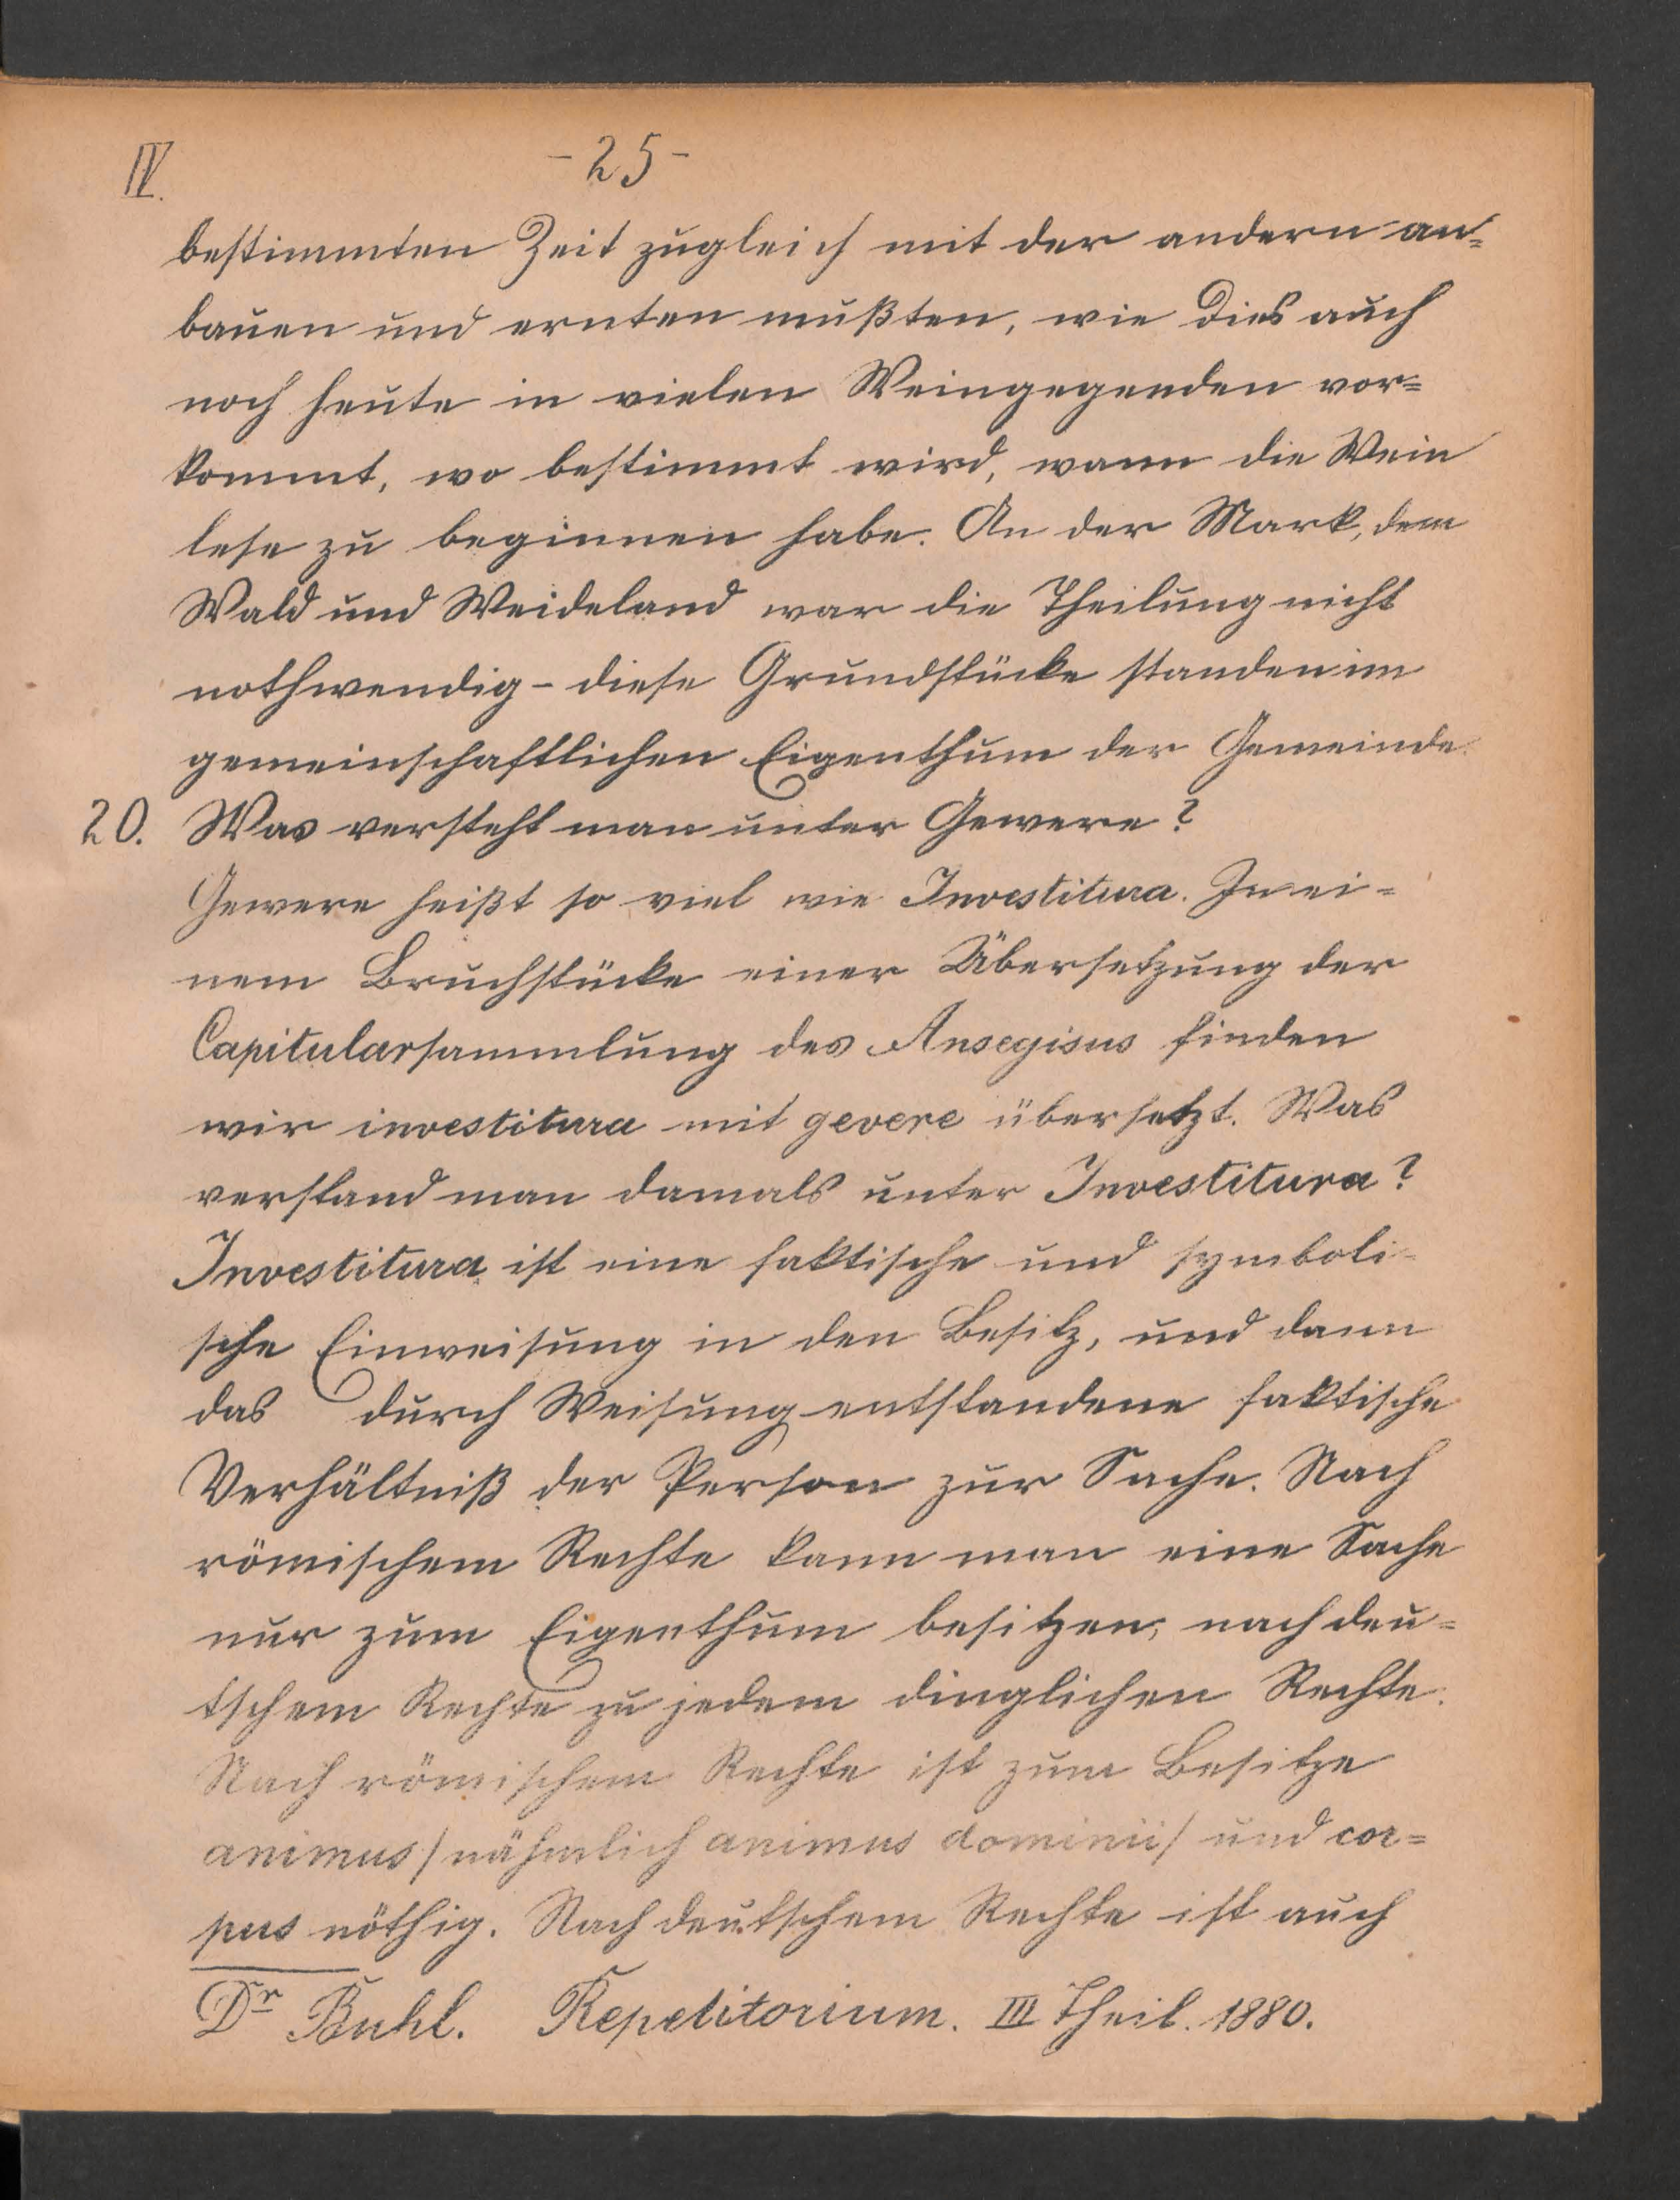 IV.
- 25 -
bestimmten Zeit zugleich mit der andern an=
bauen und ernten mußten, wie dies auch
noch heute in vielen Weingegenden vor=
kommt, wo bestimmt wird, wann die Wein
lese zu beginnen habe. An der Mark, dem
Wald und Weideland war die Theilung nicht
nothwendig - diese Grundstücke standen im
gemeinschaftlichen Eigenthum der Gemeinde.
20. Was versteht man unter Gewere?
Gewere heißt so viel wie Investitura. In ei=
nem Bruchstücke einer Übersetzung der
Capitularsammlung des Ansegisus finden
wir investitura mit gevere übersetzt. Was
verstand man damals unter Investitura?
Investitura ist eine faktische und symboli-
sche Einweisung in den Besitz, und dann
das durch Weisung entstandene faktische
Verhältniß der Person zur Sache. Nach
römischem Rechte kann man eine Sache
nur zum Eigenthum besitzen, nach deu=
tschem Rechte zu jedem dinglichen Rechte.
Nach römischem Rechte ist zum Besitze
animus / nähmlich animus dominii / und cor=
pus nöthig. Nach deutschem Rechte ist auch
Dr Buhl. Repetitorium. III Theil. 1880.